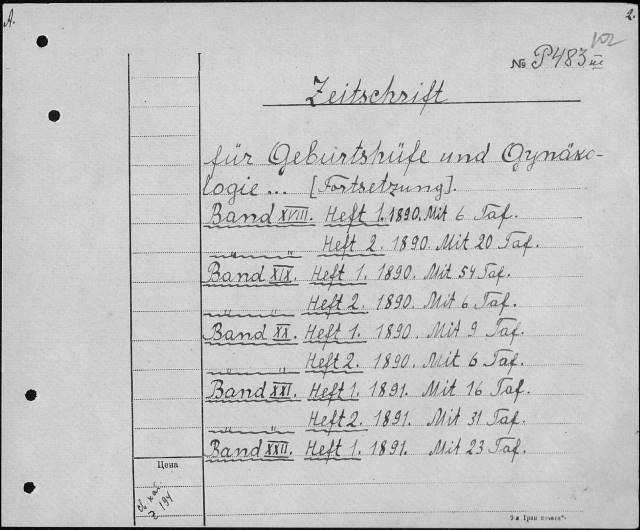 A.
2.
102
№ P483 III
Zeitschrift
für Geburtshüfe und Gynäko-
logie... [Fortsetzung].
Band XVIII. Heft 1. 1890. Mit 6 Taf.
„ „ Heft 2. 1890. Mit 20 Taf.
Band XIX. Heft 1. 1890. Mit 54 Taf.
„ „ Heft 2. 1890. Mit 6 Taf.
Band XX. Heft 1. 1890. Mit 9 Taf.
„ „ Heft 2. 1890. Mit 6 Taf.
Band XXI. Heft 1. 1891. Mit 16 Taf.
„ „ Heft 2. 1891. Mit 31 Taf.
Band XXII. Heft 1. 1891. Mit 23 Taf.
Цена
194